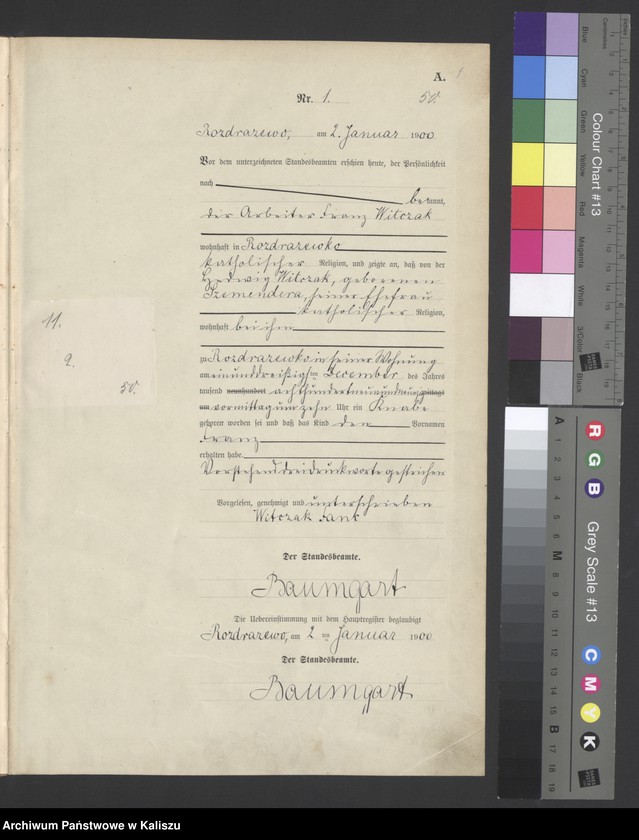 A. 1
Nr. 1. 50.
Rozdrazewo, am 2. Januar 1900
Vor dem unterzeichneten Standesbeamten erschien heute, der Persönlichkeit
nach
bekannt,
der Arbeiter Franz Witczak
wohnhaft in Rozdrazewko
katholischer Religion, und zeigte an, daß von der
Ludwig Witczak, geborenen
Szemendera, seiner Ehefrau
katholischer Religion,
wohnhaft bei ihm
zu Rozdrazewko in seiner Wohnung
am einunddreißig ten December des Jahres
tausend neunhundert achthundertneunundneunzig
um vormittag um zehn Uhr ein Knabe
geboren worden sei und daß das Kind den Vornamen
Franz
erhalten habe.
Vorstehend drei Druckworte gestrichen
Vorgelesen, genehmigt und unterschrieben
Witczak
Der Standesbeamte.
Baumgart
Die Uebereinstimmung mit dem Hauptregister beglaubigt
Rozdrazewo, am 2 ten Januar 1900
Der Standesbeamte.
Baumgart
11.
2.
50.
Colour Chart #13
Blue
Cyan
Green
Yellow
Red
Magenta
White
3/Color
Black
Centimetres
Inches
Grey Scale #13
R
G
B
C
M
Y
K
A 1 2 3 4 5 6 M 8 9 10 11 12 13 14 15 B 17 18 19
Archiwum Państwowe w Kaliszu